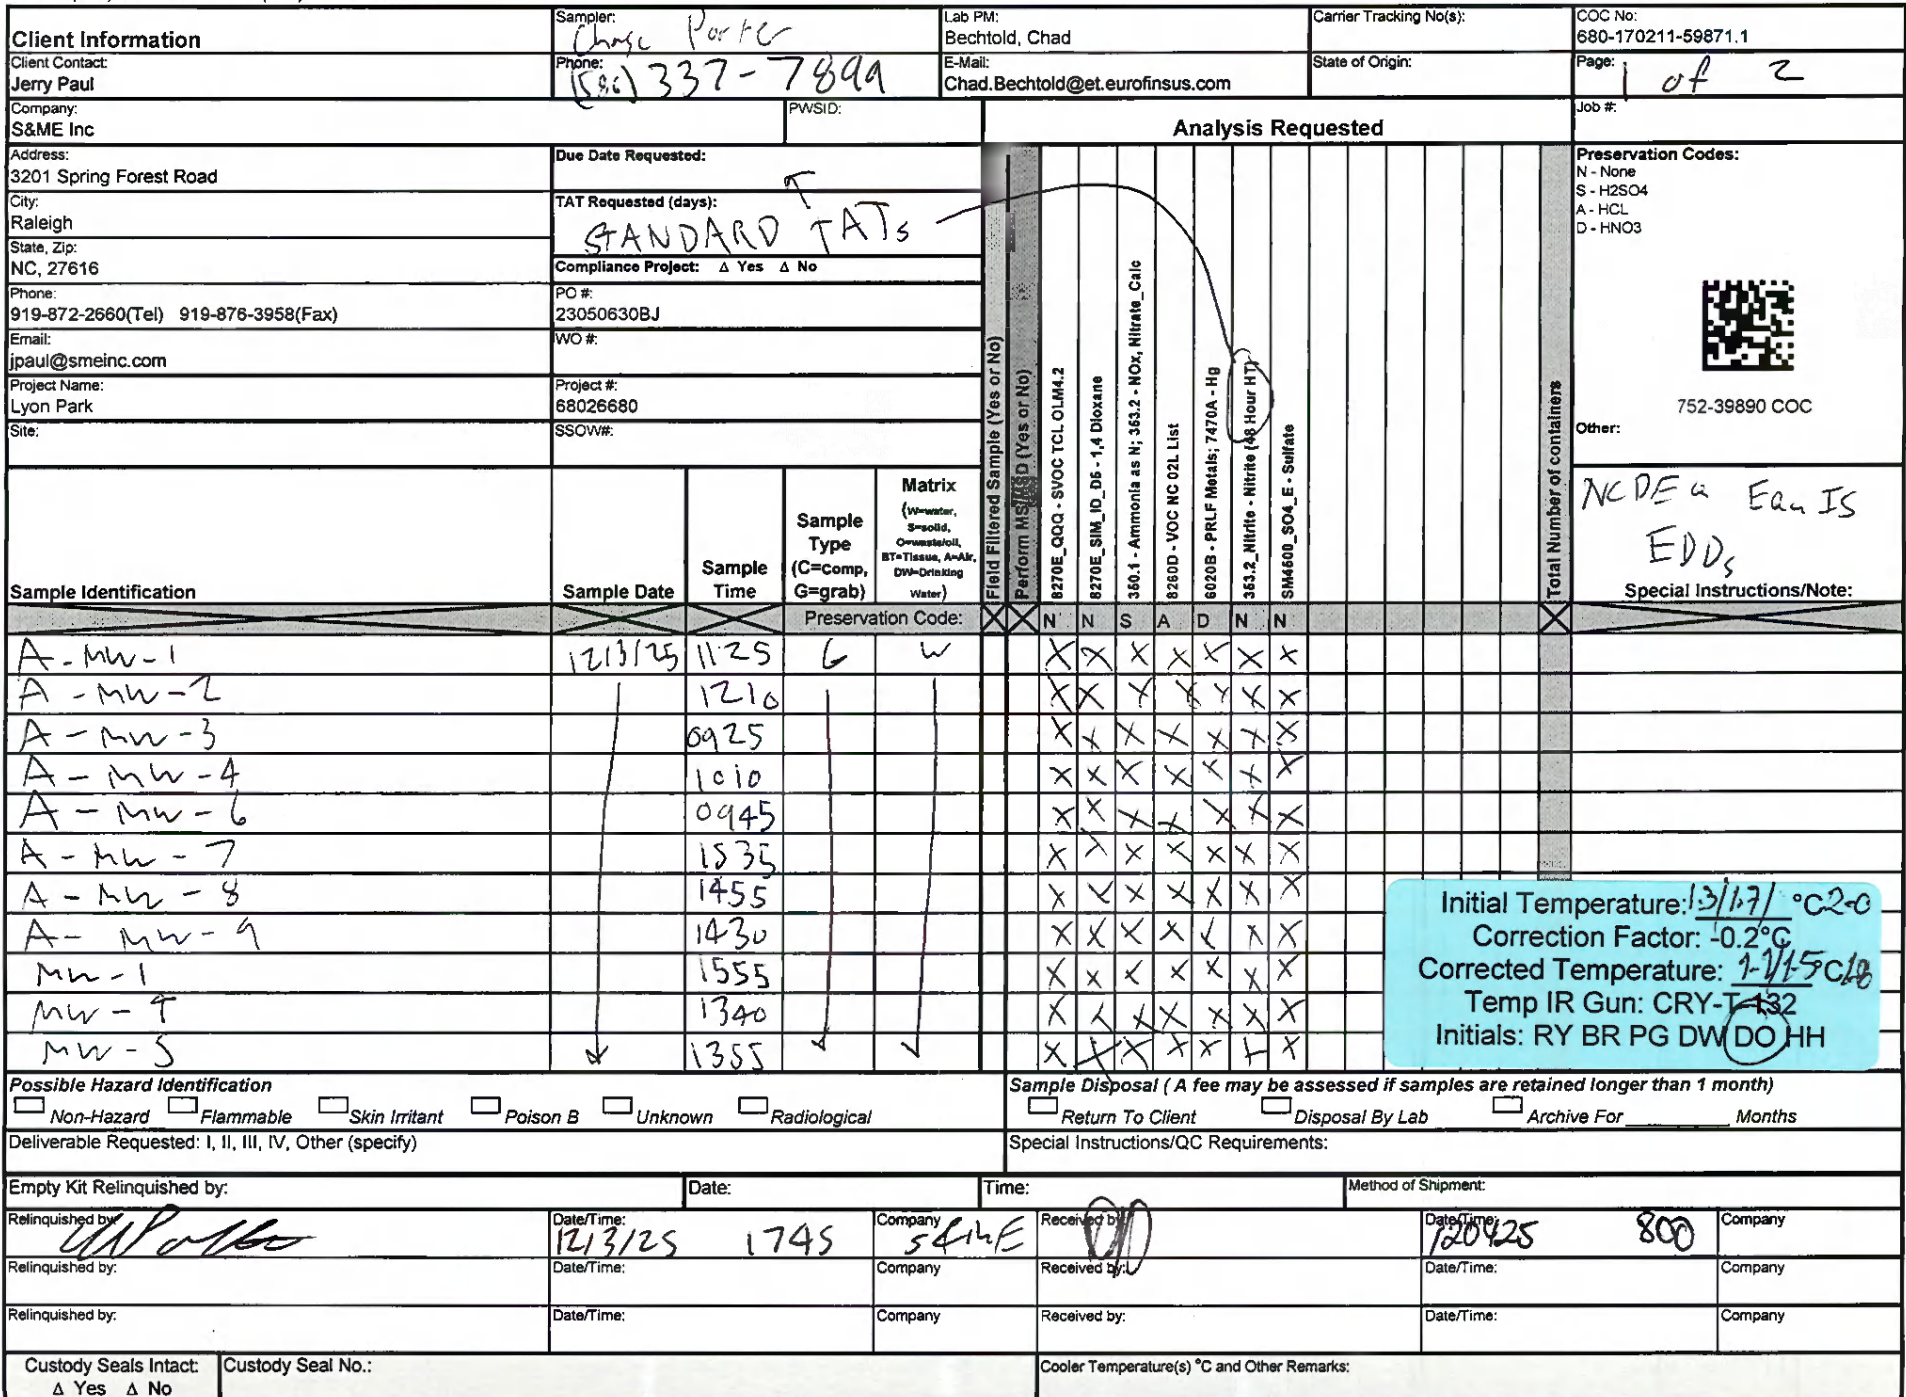 Client Information
Sampler: Chase Porter
Lab PM: Bechtold, Chad
Carrier Tracking No(s):
COC No: 680-170211-59871.1
Client Contact: Jerry Paul
Phone: (586) 337-7899
E-Mail: Chad.Bechtold@et.eurofinsus.com
State of Origin:
Page: 1 of 2
Company: S&ME Inc
PWSID:
Analysis Requested
Job #:
Address: 3201 Spring Forest Road
Due Date Requested:
City: Raleigh
TAT Requested (days): STANDARD TATs
State, Zip: NC, 27616
Compliance Project: Δ Yes Δ No
Phone: 919-872-2660(Tel) 919-876-3958(Fax)
PO #: 23050630BJ
Email: jpaul@smeinc.com
WO #:
Project Name: Lyon Park
Project #: 68026680
Site:
SSOW#:
Preservation Codes:
N - None
S - H2SO4
A - HCL
D - HNO3
752-39890 COC
Other:
NCDEQ EQuIS
EDDs
Special Instructions/Note:
Field Filtered Sample (Yes or No)
Perform MS/MSD (Yes or No)
8270E_QQQ - SVOC TCL OLM4.2
8270E_SIM_ID_D5 - 1,4 Dioxane
350.1 - Ammonia as N; 353.2 - NOx, Nitrate_Calc
8260D - VOC NC 02L List
6020B - PRLF Metals; 7470A - Hg
353.2_Nitrite - Nitrite (48 Hour HT)
SM4500_SO4_E - Sulfate
Total Number of containers
Sample Identification
Sample Date
Sample Time
Sample Type (C=comp, G=grab)
Matrix (W=water, S=solid, O=waste/oil, BT=Tissue, A=Air, DW=Drinking Water)
Preservation Code: X X N N S A D N N X
A-MW-1 12/3/25 1125 G W X X X X X X X
A-MW-2 1210 X X X X X X X
A-MW-3 0925 X X X X X X X
A-MW-4 1010 X X X X X X X
A-MW-6 0945 X X X X X X X
A-MW-7 1535 X X X X X X X
A-MW-8 1455 X X X X X X X
A-MW-9 1430 X X X X X X X
MW-1 1555 X X X X X X X
MW-4 1340 X X X X X X X
MW-5 1355 X X X X X X X
Initial Temperature: 1.3/1.7/ °C 2.0
Correction Factor: -0.2°C
Corrected Temperature: 1.1/1.5 °C 1.8
Temp IR Gun: CRY-T-132
Initials: RY BR PG DW DO HH
Possible Hazard Identification
Non-Hazard Flammable Skin Irritant Poison B Unknown Radiological
Sample Disposal ( A fee may be assessed if samples are retained longer than 1 month)
Return To Client Disposal By Lab Archive For Months
Deliverable Requested: I, II, III, IV, Other (specify)
Special Instructions/QC Requirements:
Empty Kit Relinquished by:
Date:
Time:
Method of Shipment:
Relinquished by:
Date/Time: 12/3/25 1745
Company S&ME
Received by:
Date/Time: 120425 800
Company
Relinquished by:
Date/Time:
Company
Received by:
Date/Time:
Company
Relinquished by:
Date/Time:
Company
Received by:
Date/Time:
Company
Custody Seals Intact: Δ Yes Δ No
Custody Seal No.:
Cooler Temperature(s) °C and Other Remarks: